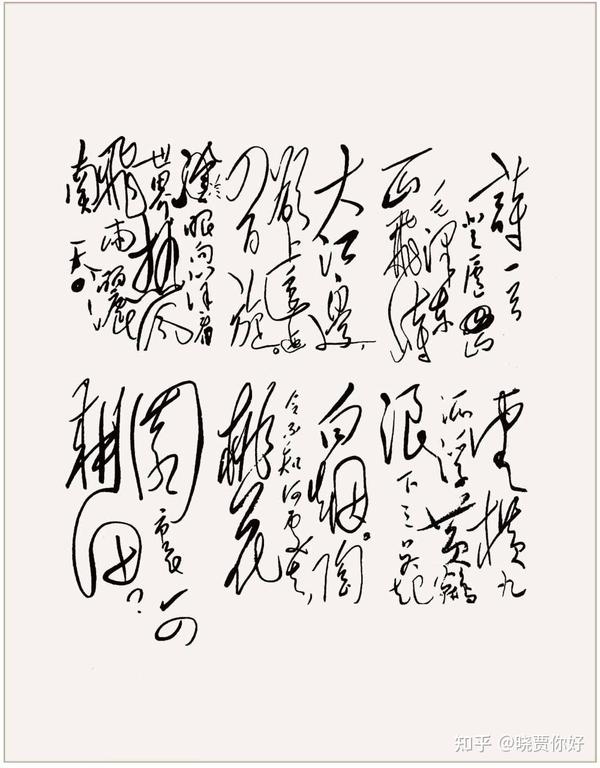 詩一首
登廬山
毛澤東
一山飛峙
大江邊，
欲上逶迤
四百旋。
冷眼向洋看
世界，熱風
飛雨灑
南天。
雲橫九
派浮黃鶴
浪下三吴起
白烟。陶
令不知何處去，
桃花
源裏可
耕田？
知乎 @晓贾你好